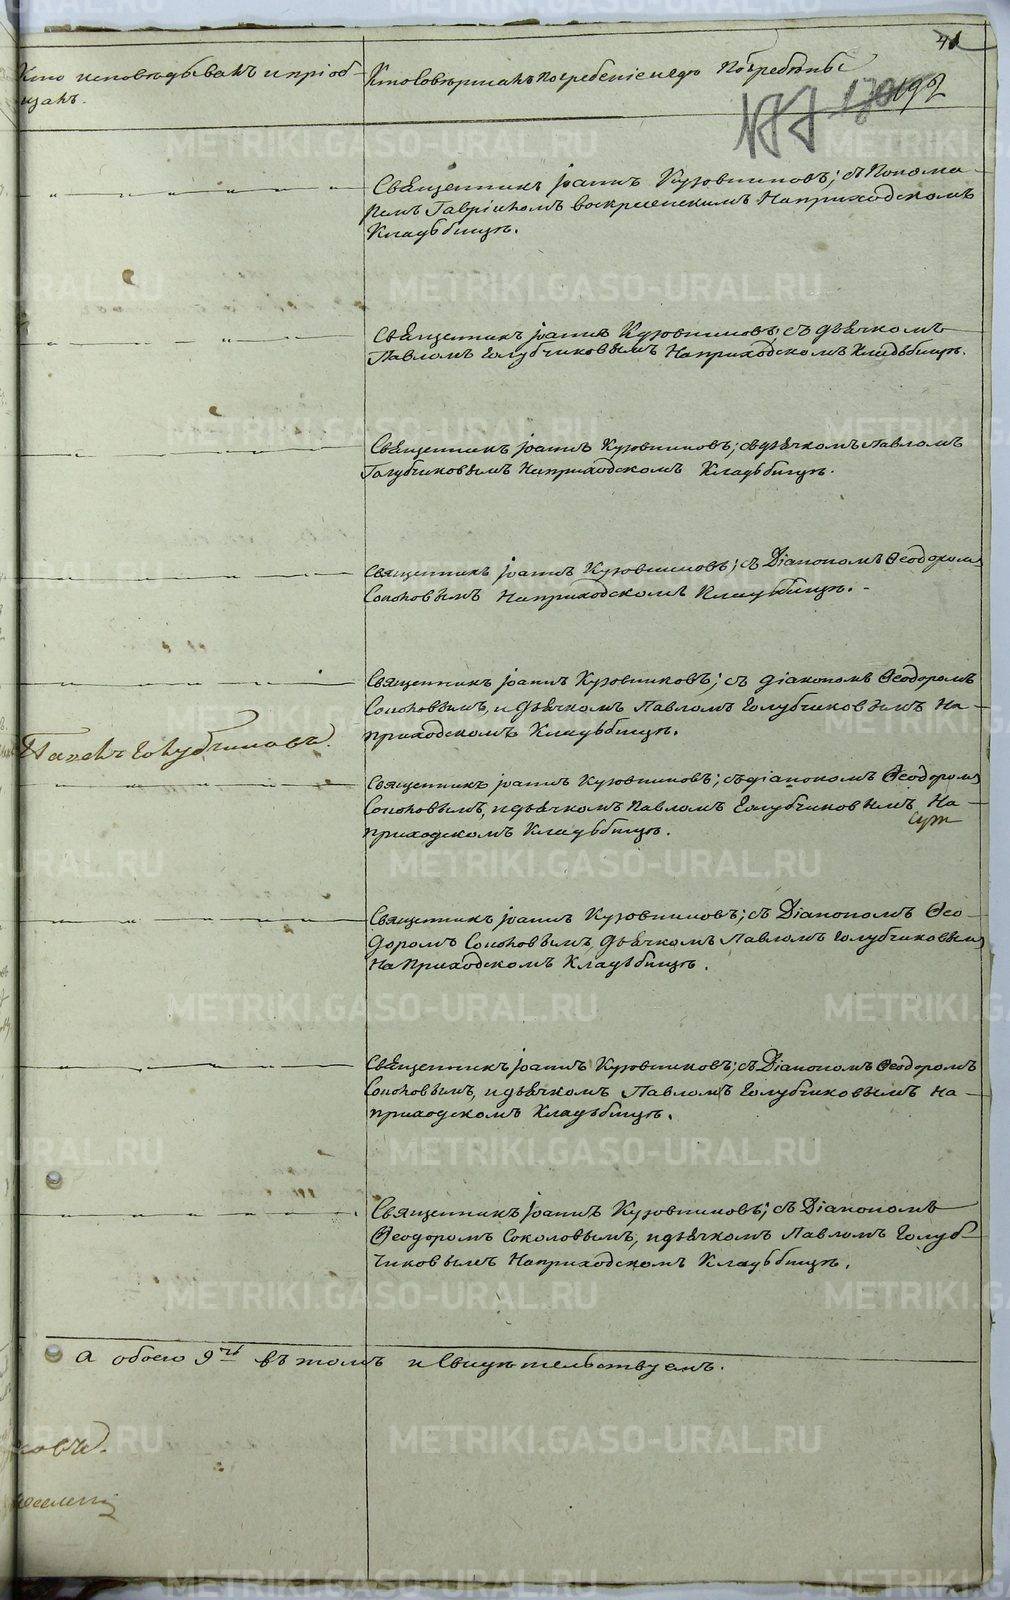 41
Кто исповѣдывалъ и пріоб-
щалъ.
Кто Совѣршалъ погребеніе и гдѣ Погребѣны
177 170 192
Священникъ Іоаннъ Кузовниковъ; съ Понома-
ремъ Гавріиломъ воскресенскимъ На приходскомъ
Кладьбищѣ.
Священникъ Іоаннъ Кузовниковъ; съ дьячкомъ
Павломъ Голубчиковымъ На приходскомъ Кладьбищѣ.
Священникъ Іоаннъ Кузовниковъ; съ дьячкомъ Павломъ
Голубчиковымъ На приходскомъ Кладьбищѣ.
Священникъ Іоаннъ Кузовниковъ; съ Діакономъ Ѳеодоромъ
Соколовымъ На приходскомъ Кладьбищѣ.
Священникъ Іоаннъ Кузовниковъ; съ діакономъ Ѳеодоромъ
Соколовымъ, и дьячкомъ Павломъ Голубчиковымъ На-
приходскомъ Кладьбищѣ.
Павелъ Голубчиковъ.
Священникъ Іоаннъ Кузовниковъ; съ діакономъ Ѳеодоромъ
Соколовымъ, и дьячкомъ Павломъ Голубчиковымъ На-
приходскомъ Кладьбищѣ.
Священникъ Іоаннъ Кузовниковъ; съ Діакономъ Ѳео-
доромъ Соколовымъ, дьячкомъ Павломъ Голубчиковымъ
На Приходскомъ Кладьбищѣ.
Священникъ Іоаннъ Кузовниковъ; съ Діакономъ Ѳеодоромъ
Соколовымъ, и дьячкомъ Павломъ Голубчиковымъ на-
приходскомъ Кладьбищѣ.
Священникъ Іоаннъ Кузовниковъ; съ Діакономъ
Ѳеодоромъ Соколовымъ, и дьячкомъ Павломъ Голуб-
чиковымъ На приходскомъ Кладьбищѣ.
а обоего 9ть въ томъ и Свидѣтельствуемъ.
METRIKI.GASO-URAL.RU